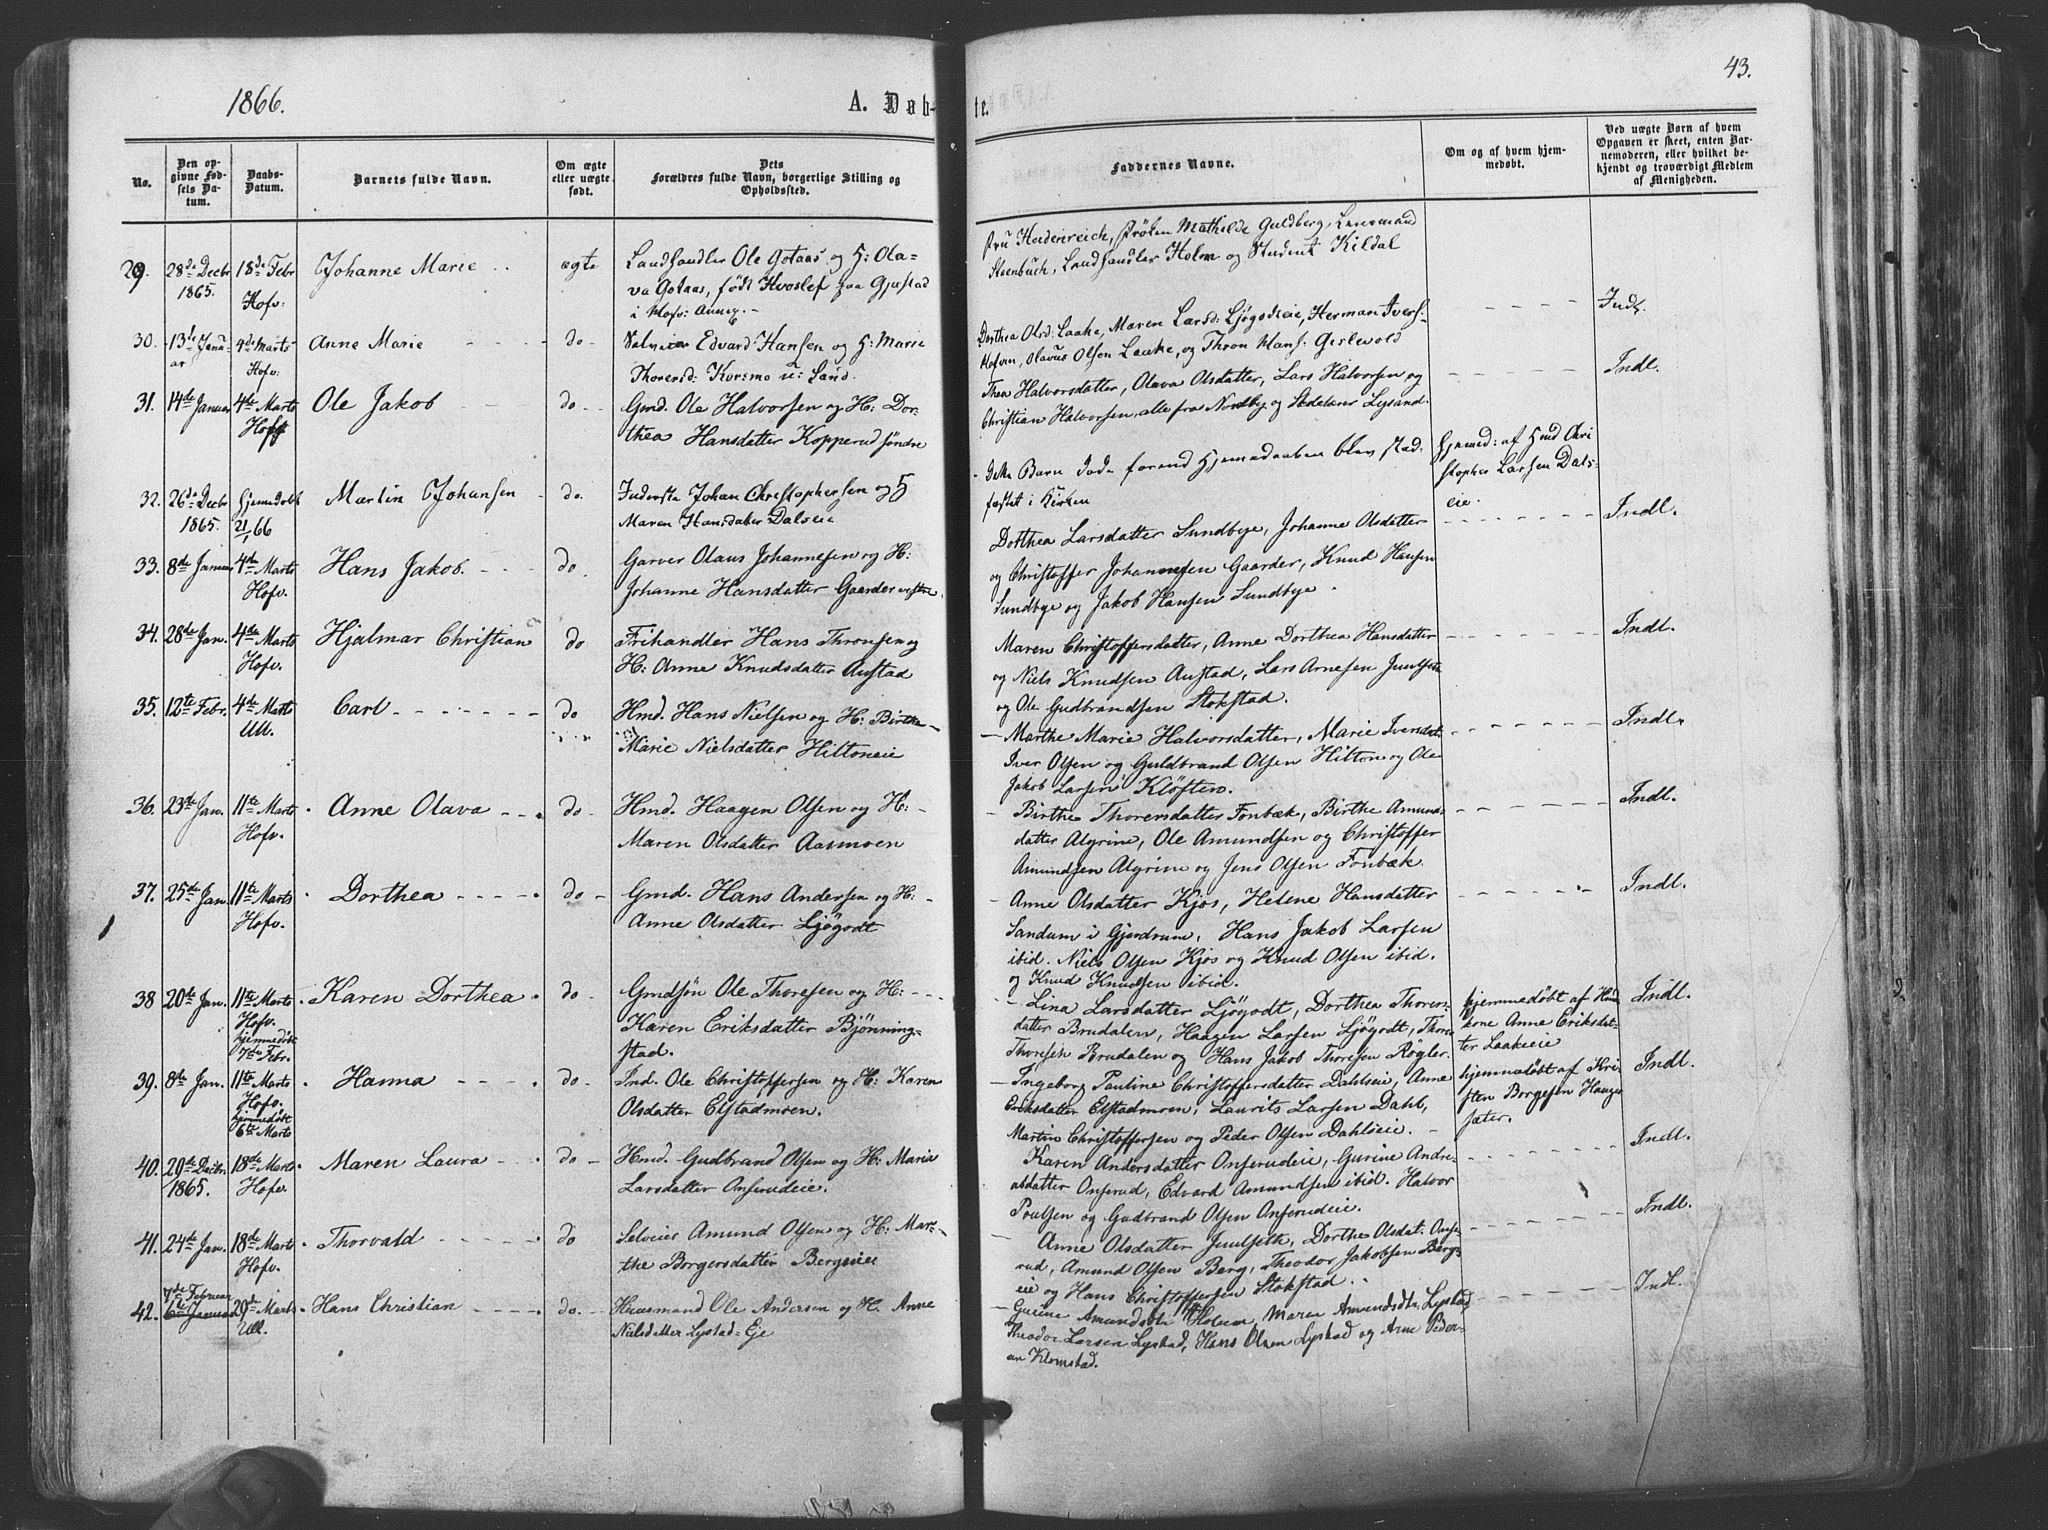 1866.
A. Døb-
te.
43.
No.
Den op-
givne Fød-
sels Da-
tum.
Daabs-
Datum.
Barnets fulde Navn.
Om ægte
eller uægte
født.
Dets
Forældres fulde Navn, borgerlige Stilling og
Opholdssted.
Faddernes Navne.
Om og af hvem hjem-
medøbt.
Ved uægte Børn af hvem
Opgaven er skeet, enten Bar-
nemoderen, eller hvilket be-
kjendt og troværdigt Medlem
af Menigheden.
29. 28de Decbr 18de Febr Johanne Marie ægte Landhandler Ole Gotaas og H: Ola-
1865. Hofv: va Gotaas, født Hvoslef paa Gjestad
i Hofv: Annex.
Fru Heidenreich, Frøken Mathilde Guldberg, Lensmand
Steenbuch, Landhandler Holm og Student Kildal
Indl.
30. 13de Janu- 4de Marts Anne Marie do Selveier Edvard Hansen og H: Marie
ar Hofv: Thoresd: Korsmo
Dorthea Olsd: Laake, Maren Larsd: Ljøgodteie, Herman Ivers:
Hofven, Olavus Olsen Laake, og Thron Hans:
Indl.
31. 14de Januar 4de Marts Ole Jakob do Gmd. Ole Halvorsen og H: Dor-
Hofv: thea Hansdatter Kopperud søndre
Thea Halvorsdatter, Olava Olsdatter, Lars Halvorsen og
Christian Halvorsen, alle fra Nordby og Lysand.
32. 26de Decbr Hjemmedøbt Martin Johansen do. Inderste Johan Christophersen og H
1865. 21/1 66 Maren Hansdatter Dalseie
Dette Barn døde forend Hjemmedaaben blev stad-
fæstet i Kirken
Hjemmed: af Hmd Chri
stopher Larsen Dals-
eie.
Indl.
33. 8de Januar 4de Marts Hans Jakob. do Garver Olaus Johannesen og H:
Hofv. Johanne Hansdatter Gaarder vestre
Dorthea Larsdatter Sundbye, Johanne Olsdatter
og Christoffer Johannesen Gaarder, Knud Hansen
Sundbye og Jakob Hansen Sundbye.
34. 28de Jan. 4de Marts Hjalmar Christian do Frihandler Hans Thronsen og
Hofv. H: Anne Knudsdatter Austad
Maren Christoffersdatter, Anne Dorthea Hansdatter
og Niels Knudsen Austad, Lars Arnesen Juulseth
og Ole Gudbrandsen Stokstad.
Indl.
35. 12te Febr. 4de Marts Carl do Hmd. Hans Nielsen og H: Birthe
Ull. Marie Nielsdatter Hiltoneie
Marthe Marie Halvorsdatter, Marie Iversdat.
Iver Olsen og Guldbrand Olsen Hilton og Ole
Jakob Larsen Kløften.
Indl.
36. 23de Jan. 11te Marts Anne Olava do Hmd. Haagen Olsen og H:
Hofv. Maren Olsdatter Aasmoen
Birthe Thorersdatter Fonbæk, Birthe Amunds
datter Algrine, Ole Amundsen og Christoffer
Amundsen Algrine og Jens Olsen Fonbæk.
Indl.
37. 25de Jan. 11te Marts Dorthea do Gmd. Hans Andersen og H:
Hofv. Anne Olsdatter Ljøgodt
Anne Olsdatter Kjos, Helene Hansdatter
Sandum i Gjerdrum, Hans Jakob Larsen
ibid. Niels Olsen Kjos og Knud Olsen ibid.
og Knud Knudsen ibid.
Indl.
38 20de Jan. 11te Marts Karen Dorthea do Gmdsøn Ole Thoresen og H:
Hofv. Karen Eriksdatter Bjønning-
hjemmedøbt stad.
7de Febr.
Lina Larsdatter Ljøgodt, Dorthea Thorers-
datter Brudalen, Haagen Larsen Ljøgodt, Thore
Thoresen Brudalen og Hans Jakob Thoresen Røgler.
hjemmedøbt af Hus
kone Anne Eriksdat-
ter Laakeeie
Indl.
39. 8de Jan. 11te Marts Hanna do Ind. Ole Christoffersen og H: Karen
Hofv. Olsdatter Elstadmoen.
hjemmedøbt
6te Marts
Ingeborg Pauline Christoffersdatter Dahlseie, Anne
Eriksdatter Elstadmoen, Laurits Larsen Dahl,
Martin Christoffersen og Peder Olsen Dahlseie.
hjemmedøbt af Kri-
sten Borgersen Hauge
sæter.
Indl.
40. 29de Decbr. 18de Marts Maren Laura do Hmd. Gudbrand Olsen og H: Maria
1865. Hofv. Larsdatter Onserudeie.
Karen Andersdatter Onserudeie, Gurine Andre-
asdatter Onserud, Edvard Amundsen ibid. Halvor
Poulsen og Gudbrand Olsen Onserudeie.
Indl.
41. 24de Jan. 18de Marts Thorvald do Selveier Amund Olsen og H: Mar-
Hofv. the Borgersdatter Bergseie
Anne Olsdatter Juulseth, Dorthe Olsdat. Onse-
rud, Amund Olsen Berg, Theodor Jakobsen Bergs-
eie og Hans Christoffersen Stokstad.
Indl.
7de Februar
42. 6te Januar 29de Marts Hans Christian do. Huusmand Ole Andersen og H. Anne
Ull. Nielsdatter Lystad-Eje
Gurine Amundsdtr Holum, Maren Amundsdtr Lystad,
Theodor Larsen Lystad, Hans Olsen Lystad og Arne Peder-
sen Klomstad.
Indl.